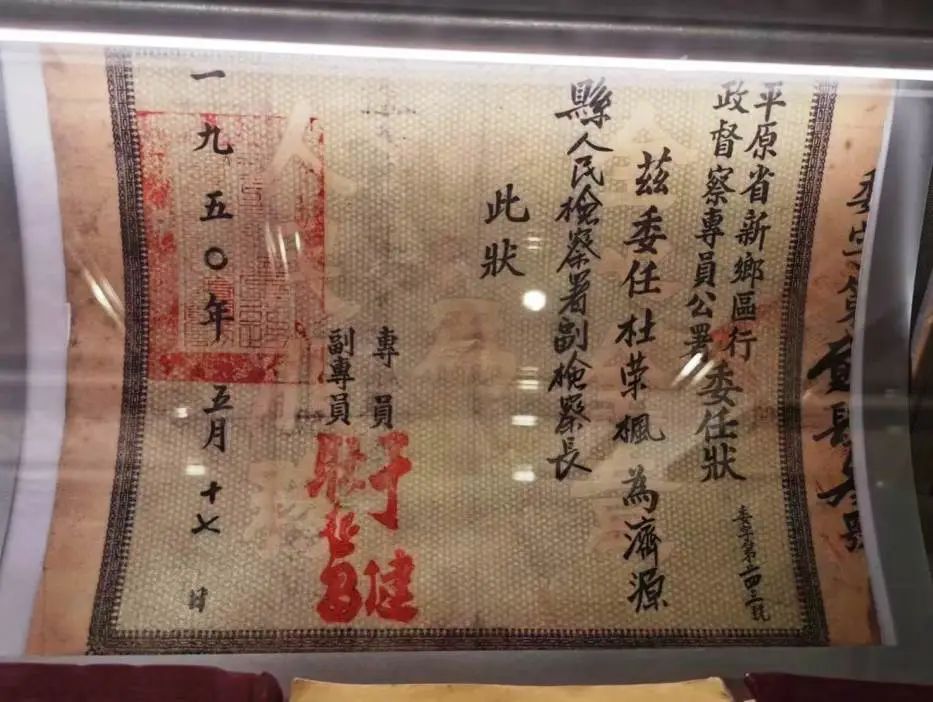 平原省新鄉區行
政督察專員公署
委任狀
委字第二四三號
茲委任杜荣楓為濟源
縣人民檢察署副檢察長
此狀
專員
于健
副專員
耿起昌
一九五〇年五月十七日